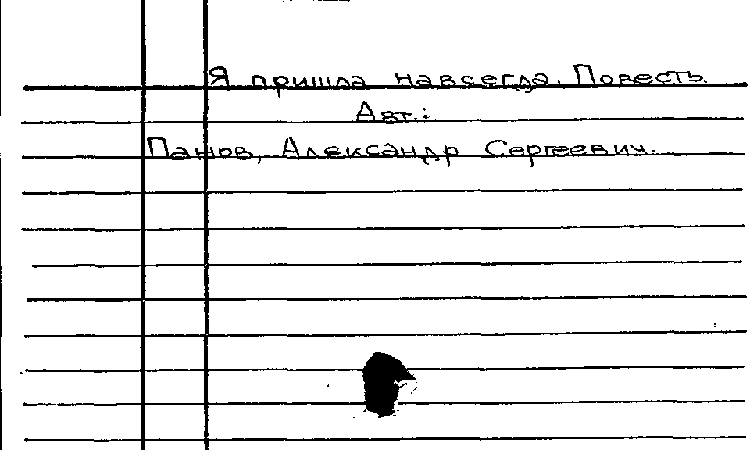 Я пришла навсегда. Повесть.
Авт.:
Панов, Александр Сергеевич.